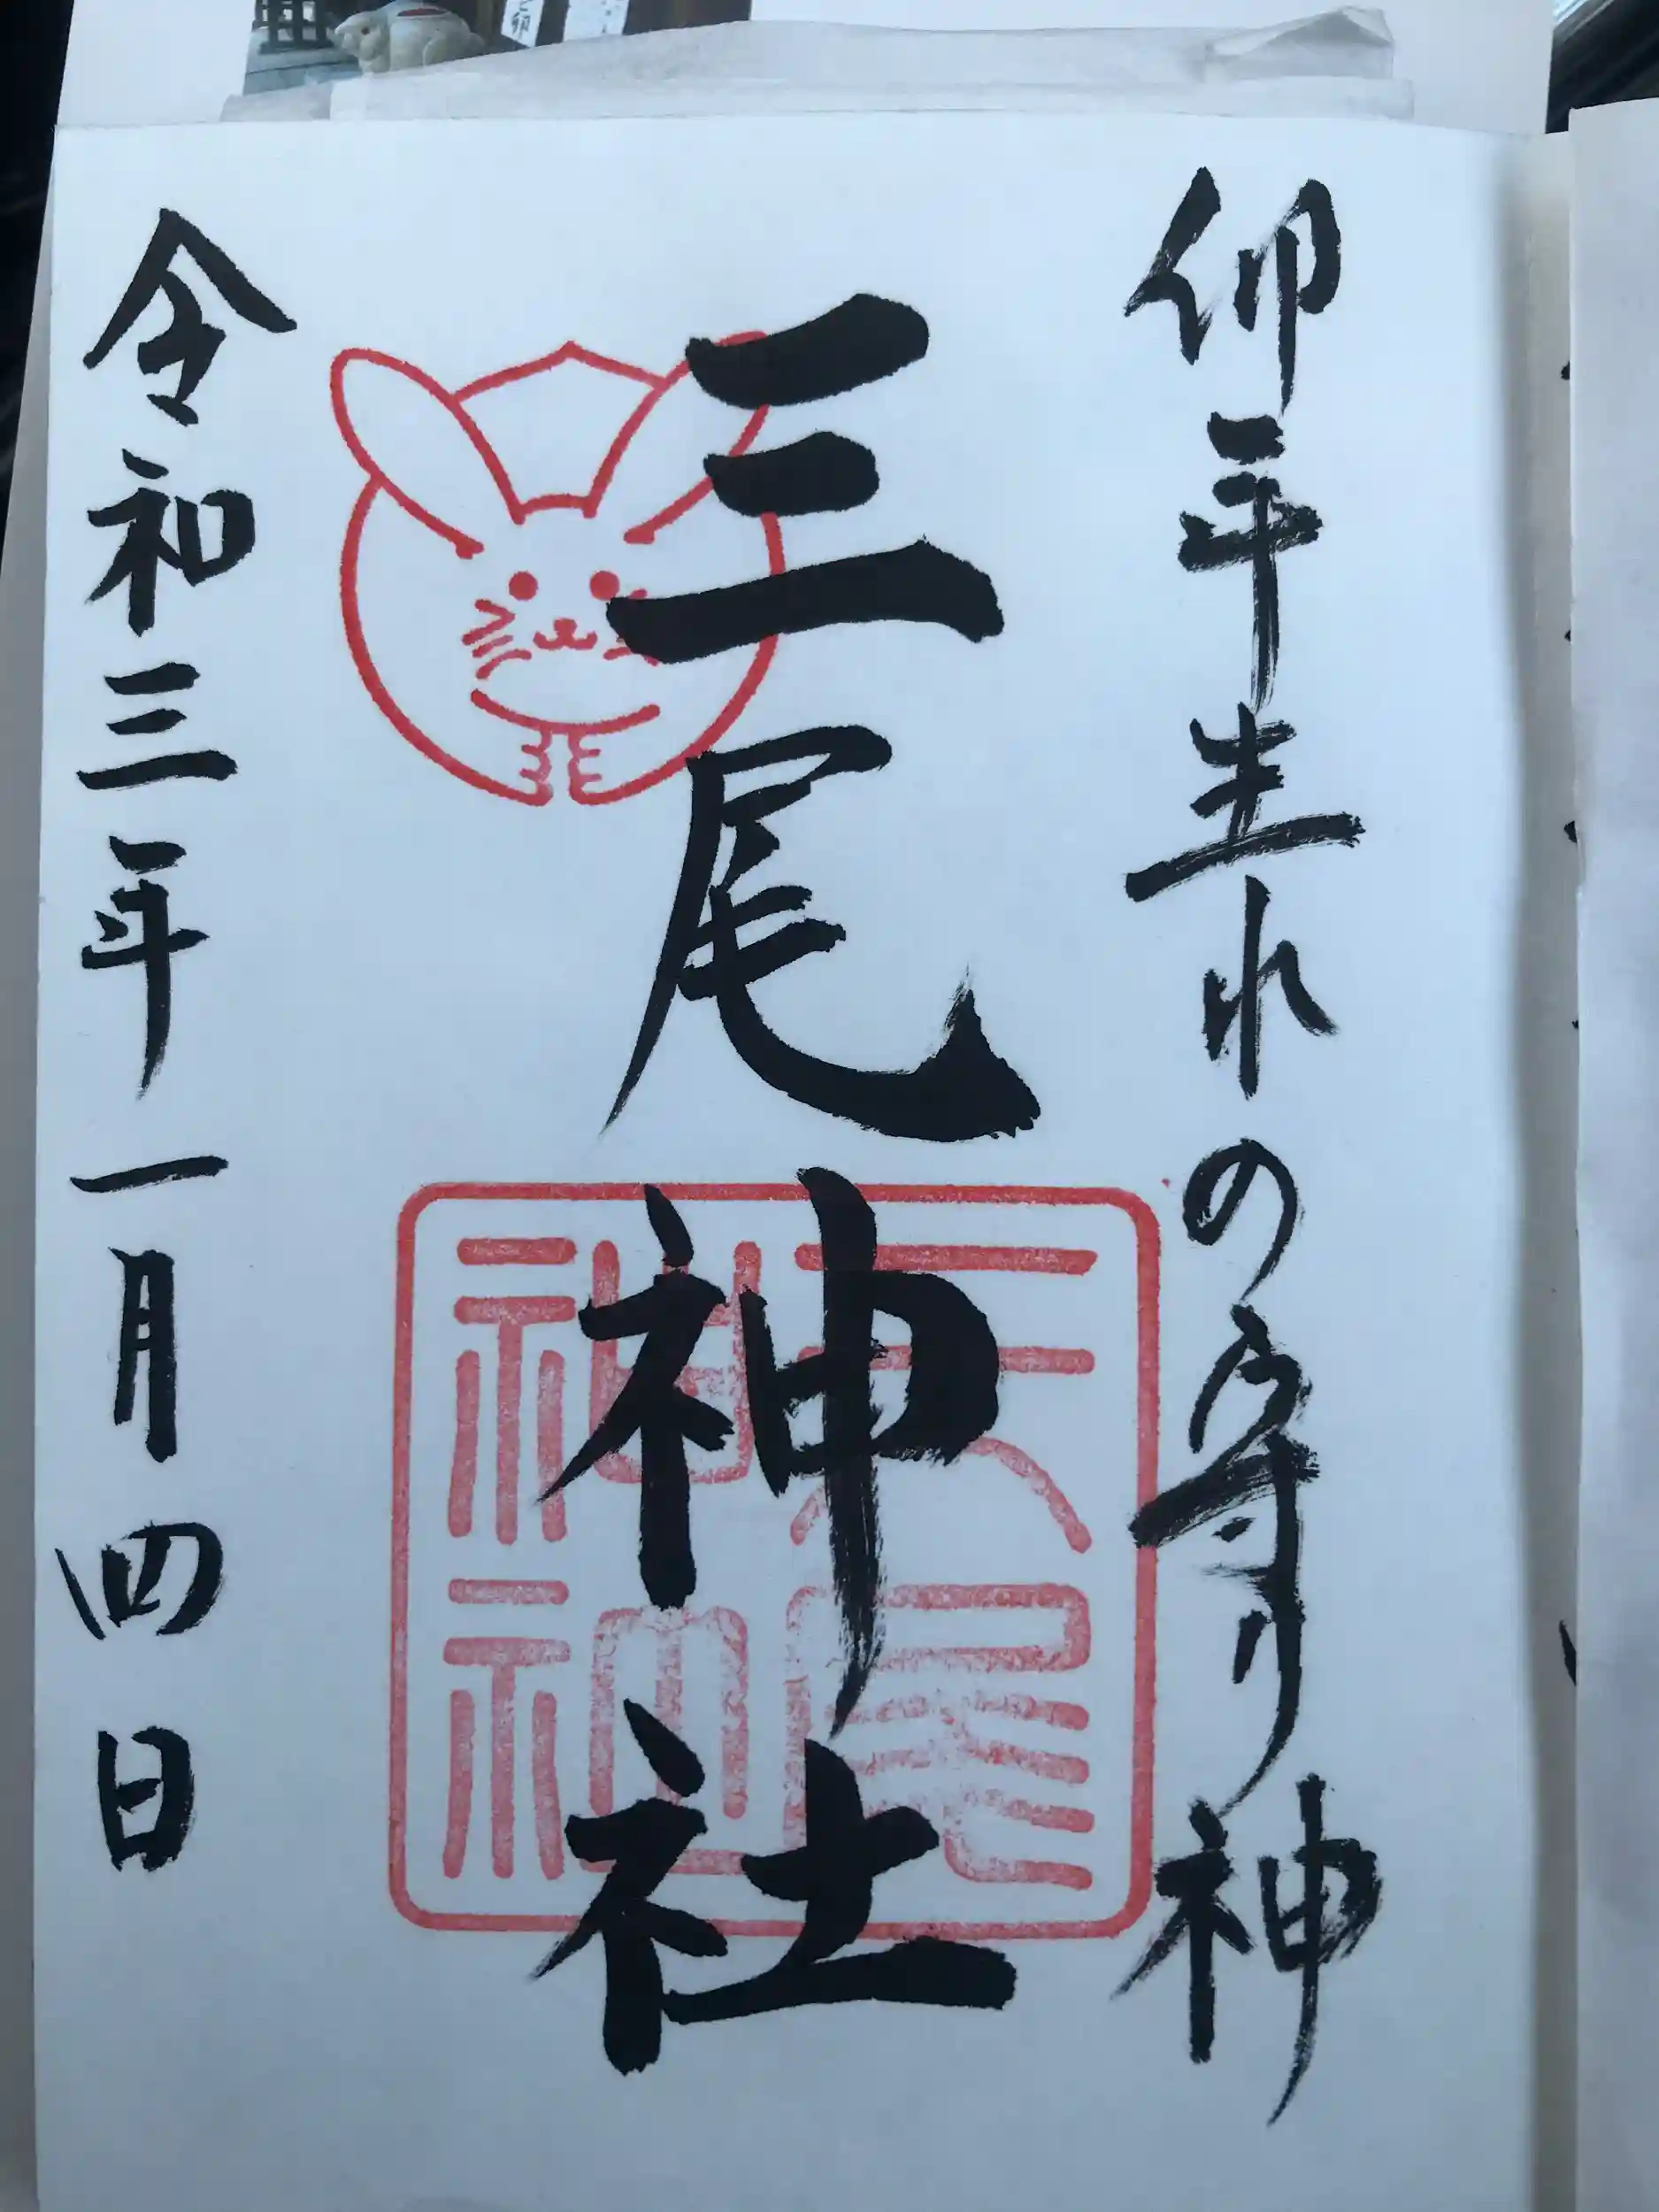 卯年生れの守り神
三尾神社
三尾神社
令和三年一月四日